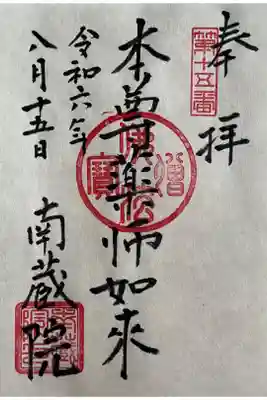 奉拝
第十五番
本尊薬師如來
佛法僧寶
令和六年
八月十五日
南蔵院